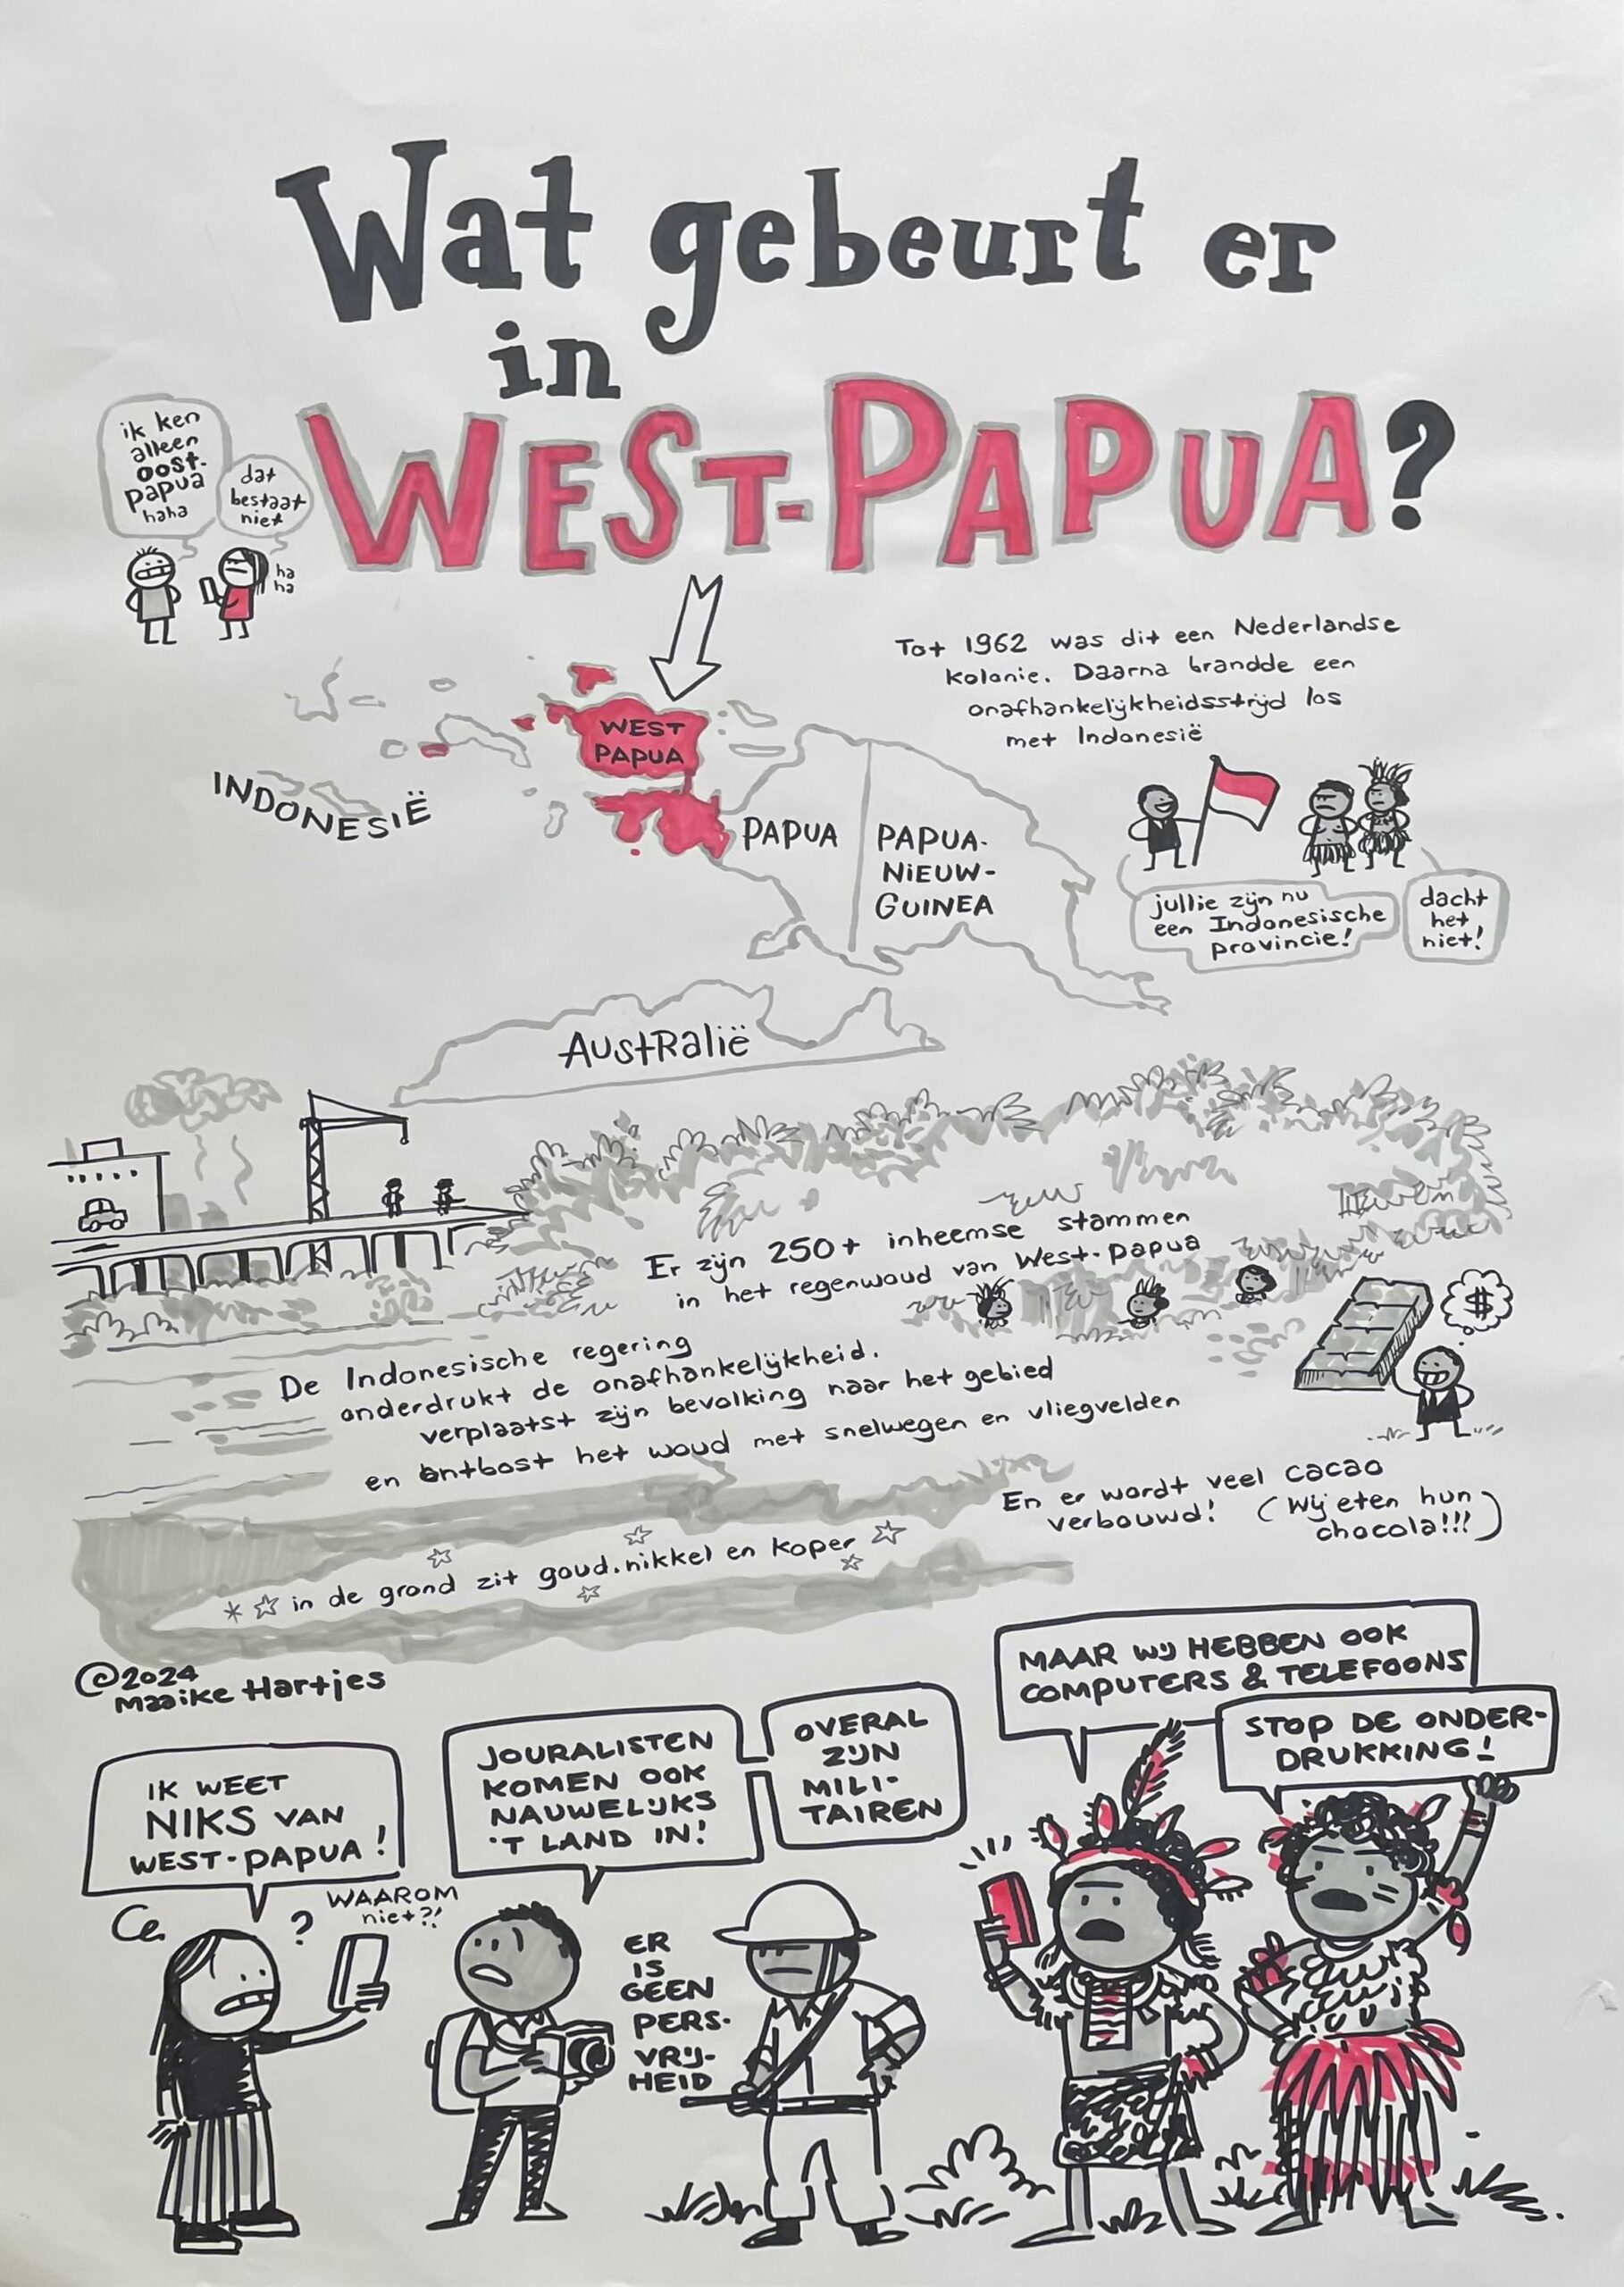 Wat gebeurt er
in
WEST-PAPUA?
ik ken
alleen
oost-
papua
haha
dat
bestaat
niet
ha
ha
Tot 1962 was dit een Nederlandse
kolonie. Daarna brandde een
onafhankelijkheidsstrijd los
met Indonesië
WEST
PAPUA
INDONESIË
PAPUA
PAPUA-
NIEUW-
GUINEA
AUSTRALIË
jullie zijn nu
een Indonesische
provincie!
dacht
het
niet!
Er zijn 250+ inheemse stammen
in het regenwoud van West-papua
De Indonesische regering
onderdrukt de onafhankelijkheid.
verplaatst zijn bevolking naar het gebied
en ontbost het woud met snelwegen en vliegvelden
$
En er wordt veel cacao
verbouwd! (Wij eten hun
chocola!!!)
in de grond zit goud, nikkel en koper
©2024
Maaike Hartjes
IK WEET
NIKS VAN
WEST-PAPUA!
?
WAAROM
niet?!
JOURALISTEN
KOMEN OOK
NAUWELIJKS
'T LAND IN!
OVERAL
ZIJN
MILI-
TAIREN
ER
IS
GEEN
PERS-
VRIJ-
HEID
MAAR WIJ HEBBEN OOK
COMPUTERS & TELEFOONS
STOP DE ONDER-
DRUKKING!